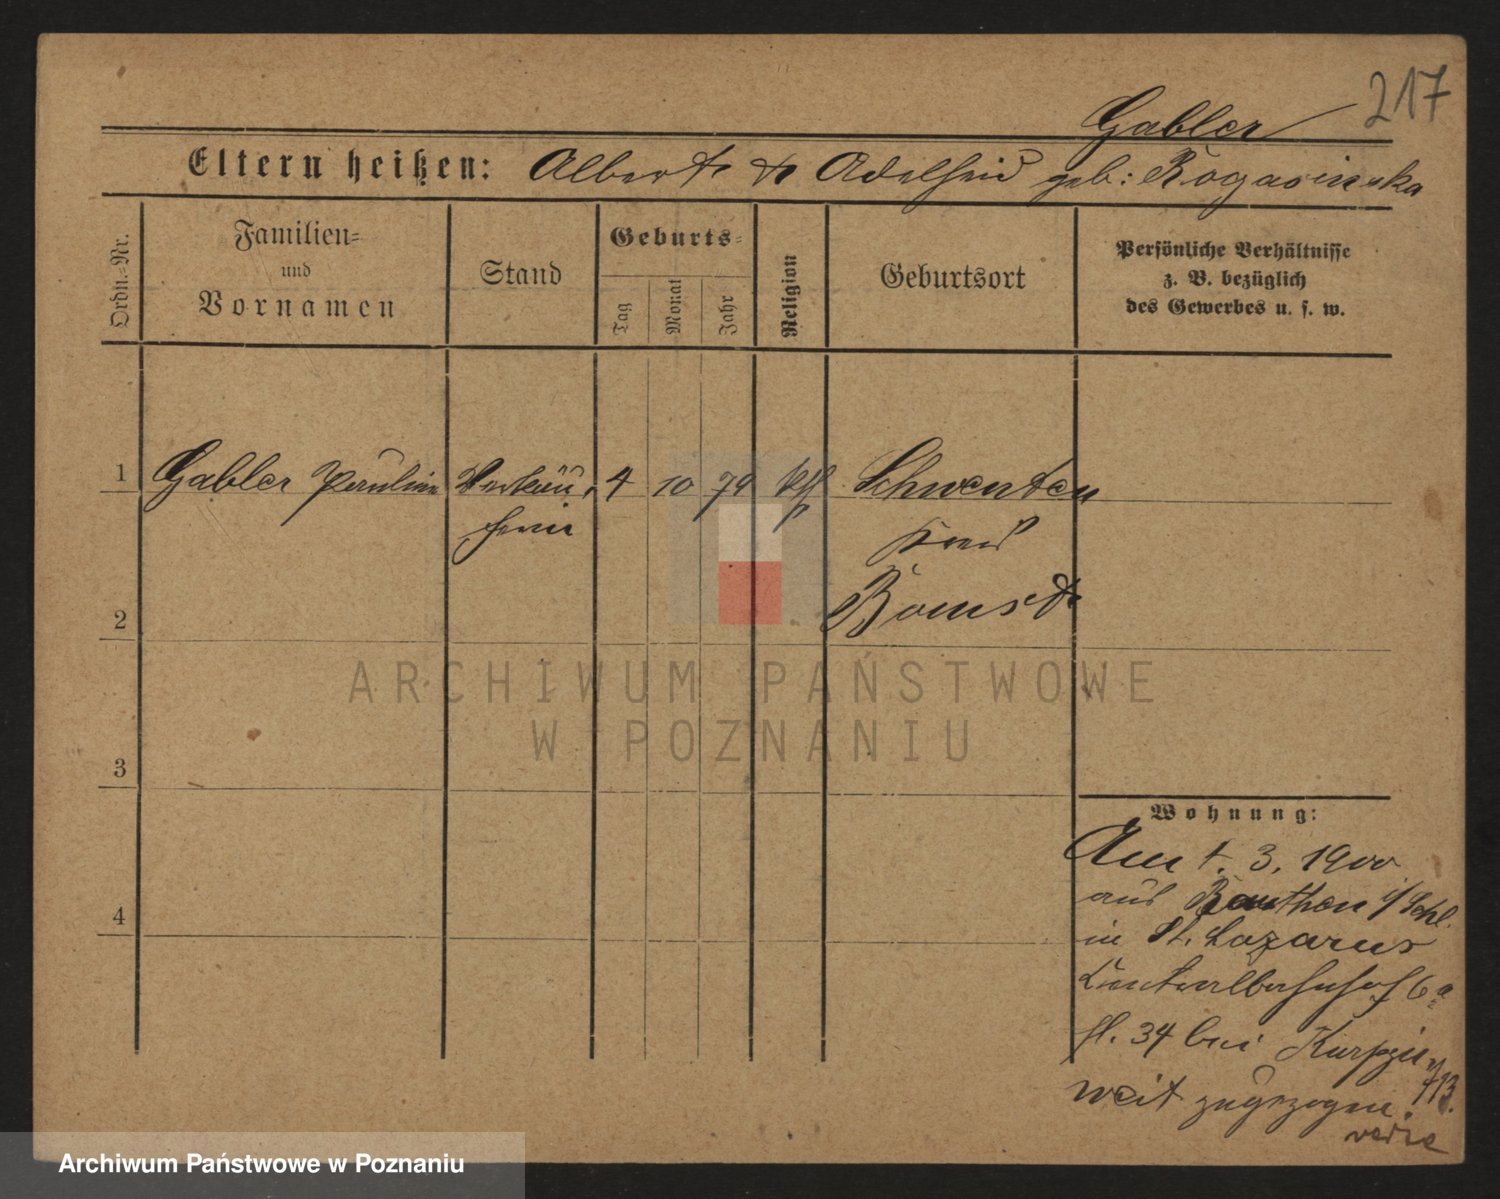 217
Gabler
Eltern heißen: Albert & Adelheid geb: Rogasinska
Ordn.=Nr.
Familien=
und
Vornamen
Stand
Geburts=
Tag
Monat
Jahr
Religion
Geburtsort
Persönliche Verhältnisse
z. B. bezüglich
des Gewerbes u. s. w.
1 Gabler Pauline Verkäu- 4 10 79 kth Schwenten
ferin Kreis
2 Bomst
ARCHIWUM PAŃSTWOWE
W POZNANIU
3
Wohnung:
Am 1. 3. 1900
aus Beuthen i/Schl.
4 in St. Lazarus
Centralbahnhof 6a
bei
weit zugezogen.
Archiwum Państwowe w Poznaniu